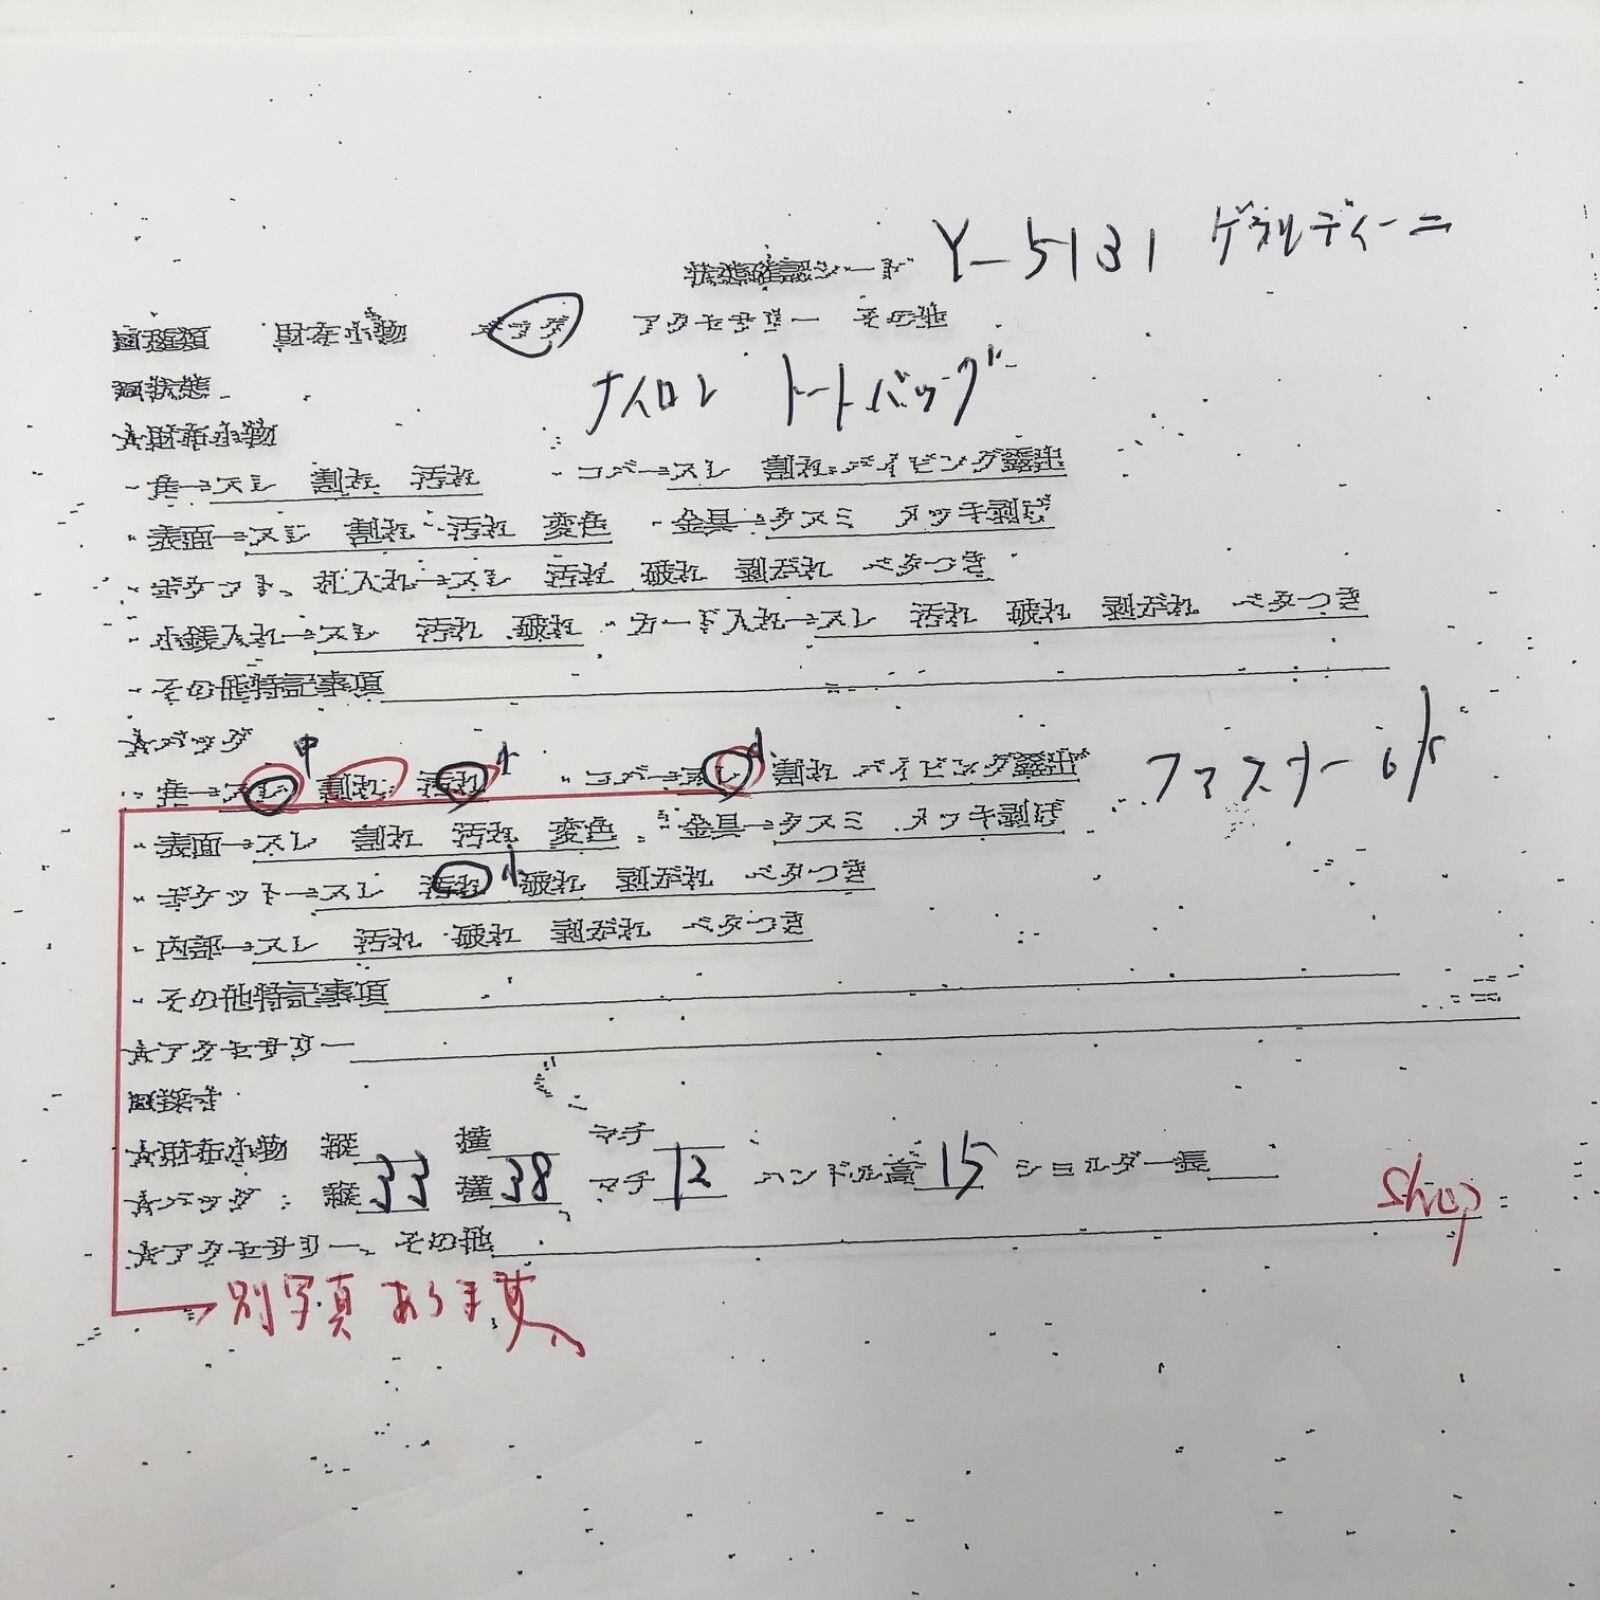 状態確認シート Y-5131 ゲラルディーニ
■種類 財布小物 バッグ アクセサリー その他
■状態
ナイロン トートバッグ
☆財布小物
・角→スレ 割れ 汚れ ・コバ→スレ 割れ パイピング露出
・表面→スレ 割れ 汚れ 変色 ・金具→クスミ メッキ剥げ
・ポケット、札入れ→スレ 汚れ 破れ 型崩れ ベタつき
・小銭入れ→スレ 汚れ 破れ ・カード入れ→スレ 汚れ 破れ 型崩れ ベタつき
・その他特記事項
☆バッグ
中 小 小
・角→スレ 割れ 汚れ ・コバ→スレ 割れ パイピング露出 ファスナー
・表面→スレ 割れ 汚れ 変色 ・金具→クスミ メッキ剥げ
・ポケット→スレ 汚れ 小 破れ 型崩れ ベタつき
・内部→スレ 汚れ 破れ 型崩れ ベタつき
・その他特記事項
☆アクセサリー
■採寸
☆財布小物 縦 横 マチ
☆バッグ : 縦33 横38 マチ12 ハンドル高15 ショルダー長
shop
☆アクセサリー、その他
別写真あります